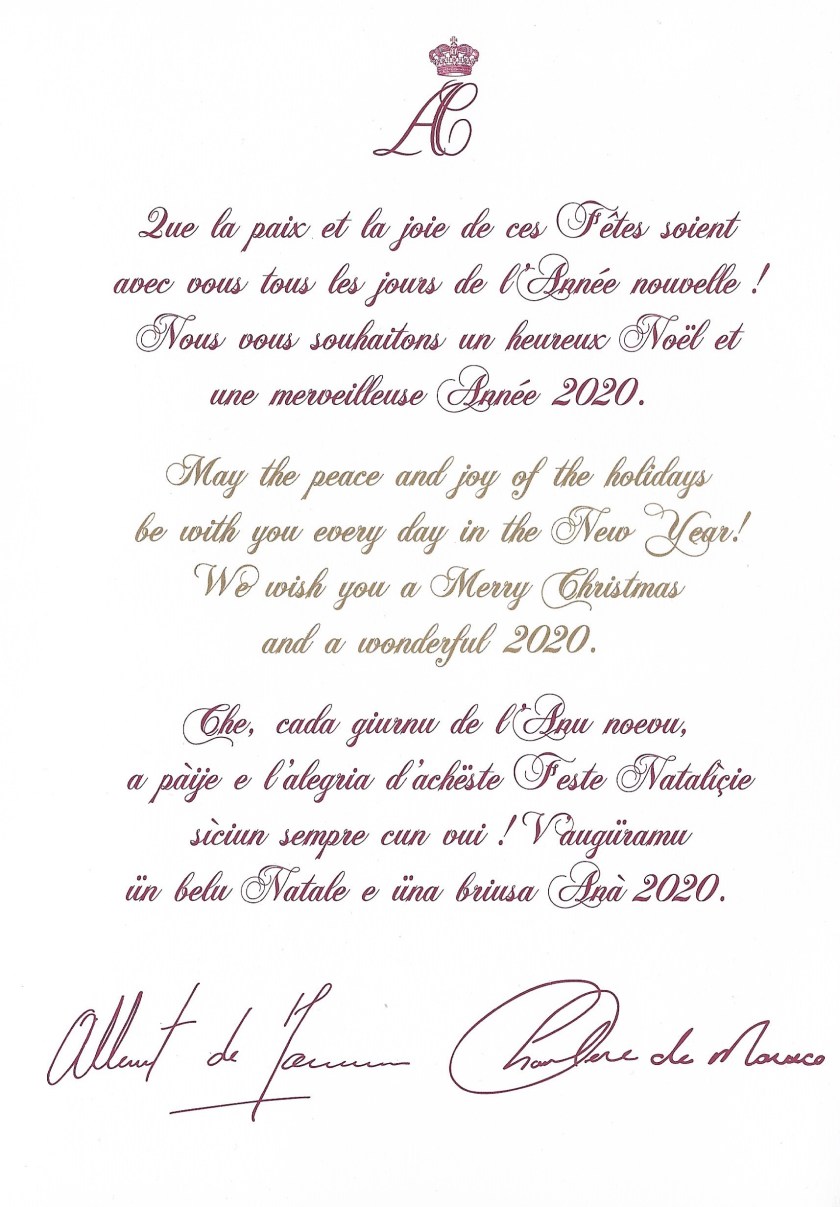 AC
Que la paix et la joie de ces Fêtes soient
avec vous tous les jours de l'Année nouvelle !
Nous vous souhaitons un heureux Noël et
une merveilleuse Année 2020.
May the peace and joy of the holidays
be with you every day in the New Year!
We wish you a Merry Christmas
and a wonderful 2020.
Che, cada giurnu de l'Anu noevu,
a pàije e l'alegria d'achëste Feste Natalìçie
sìciun sempre cun vui ! V'augüramu
ün belu Natale e üna briusa Anà 2020.
Albert de Monaco Charlène de Monaco